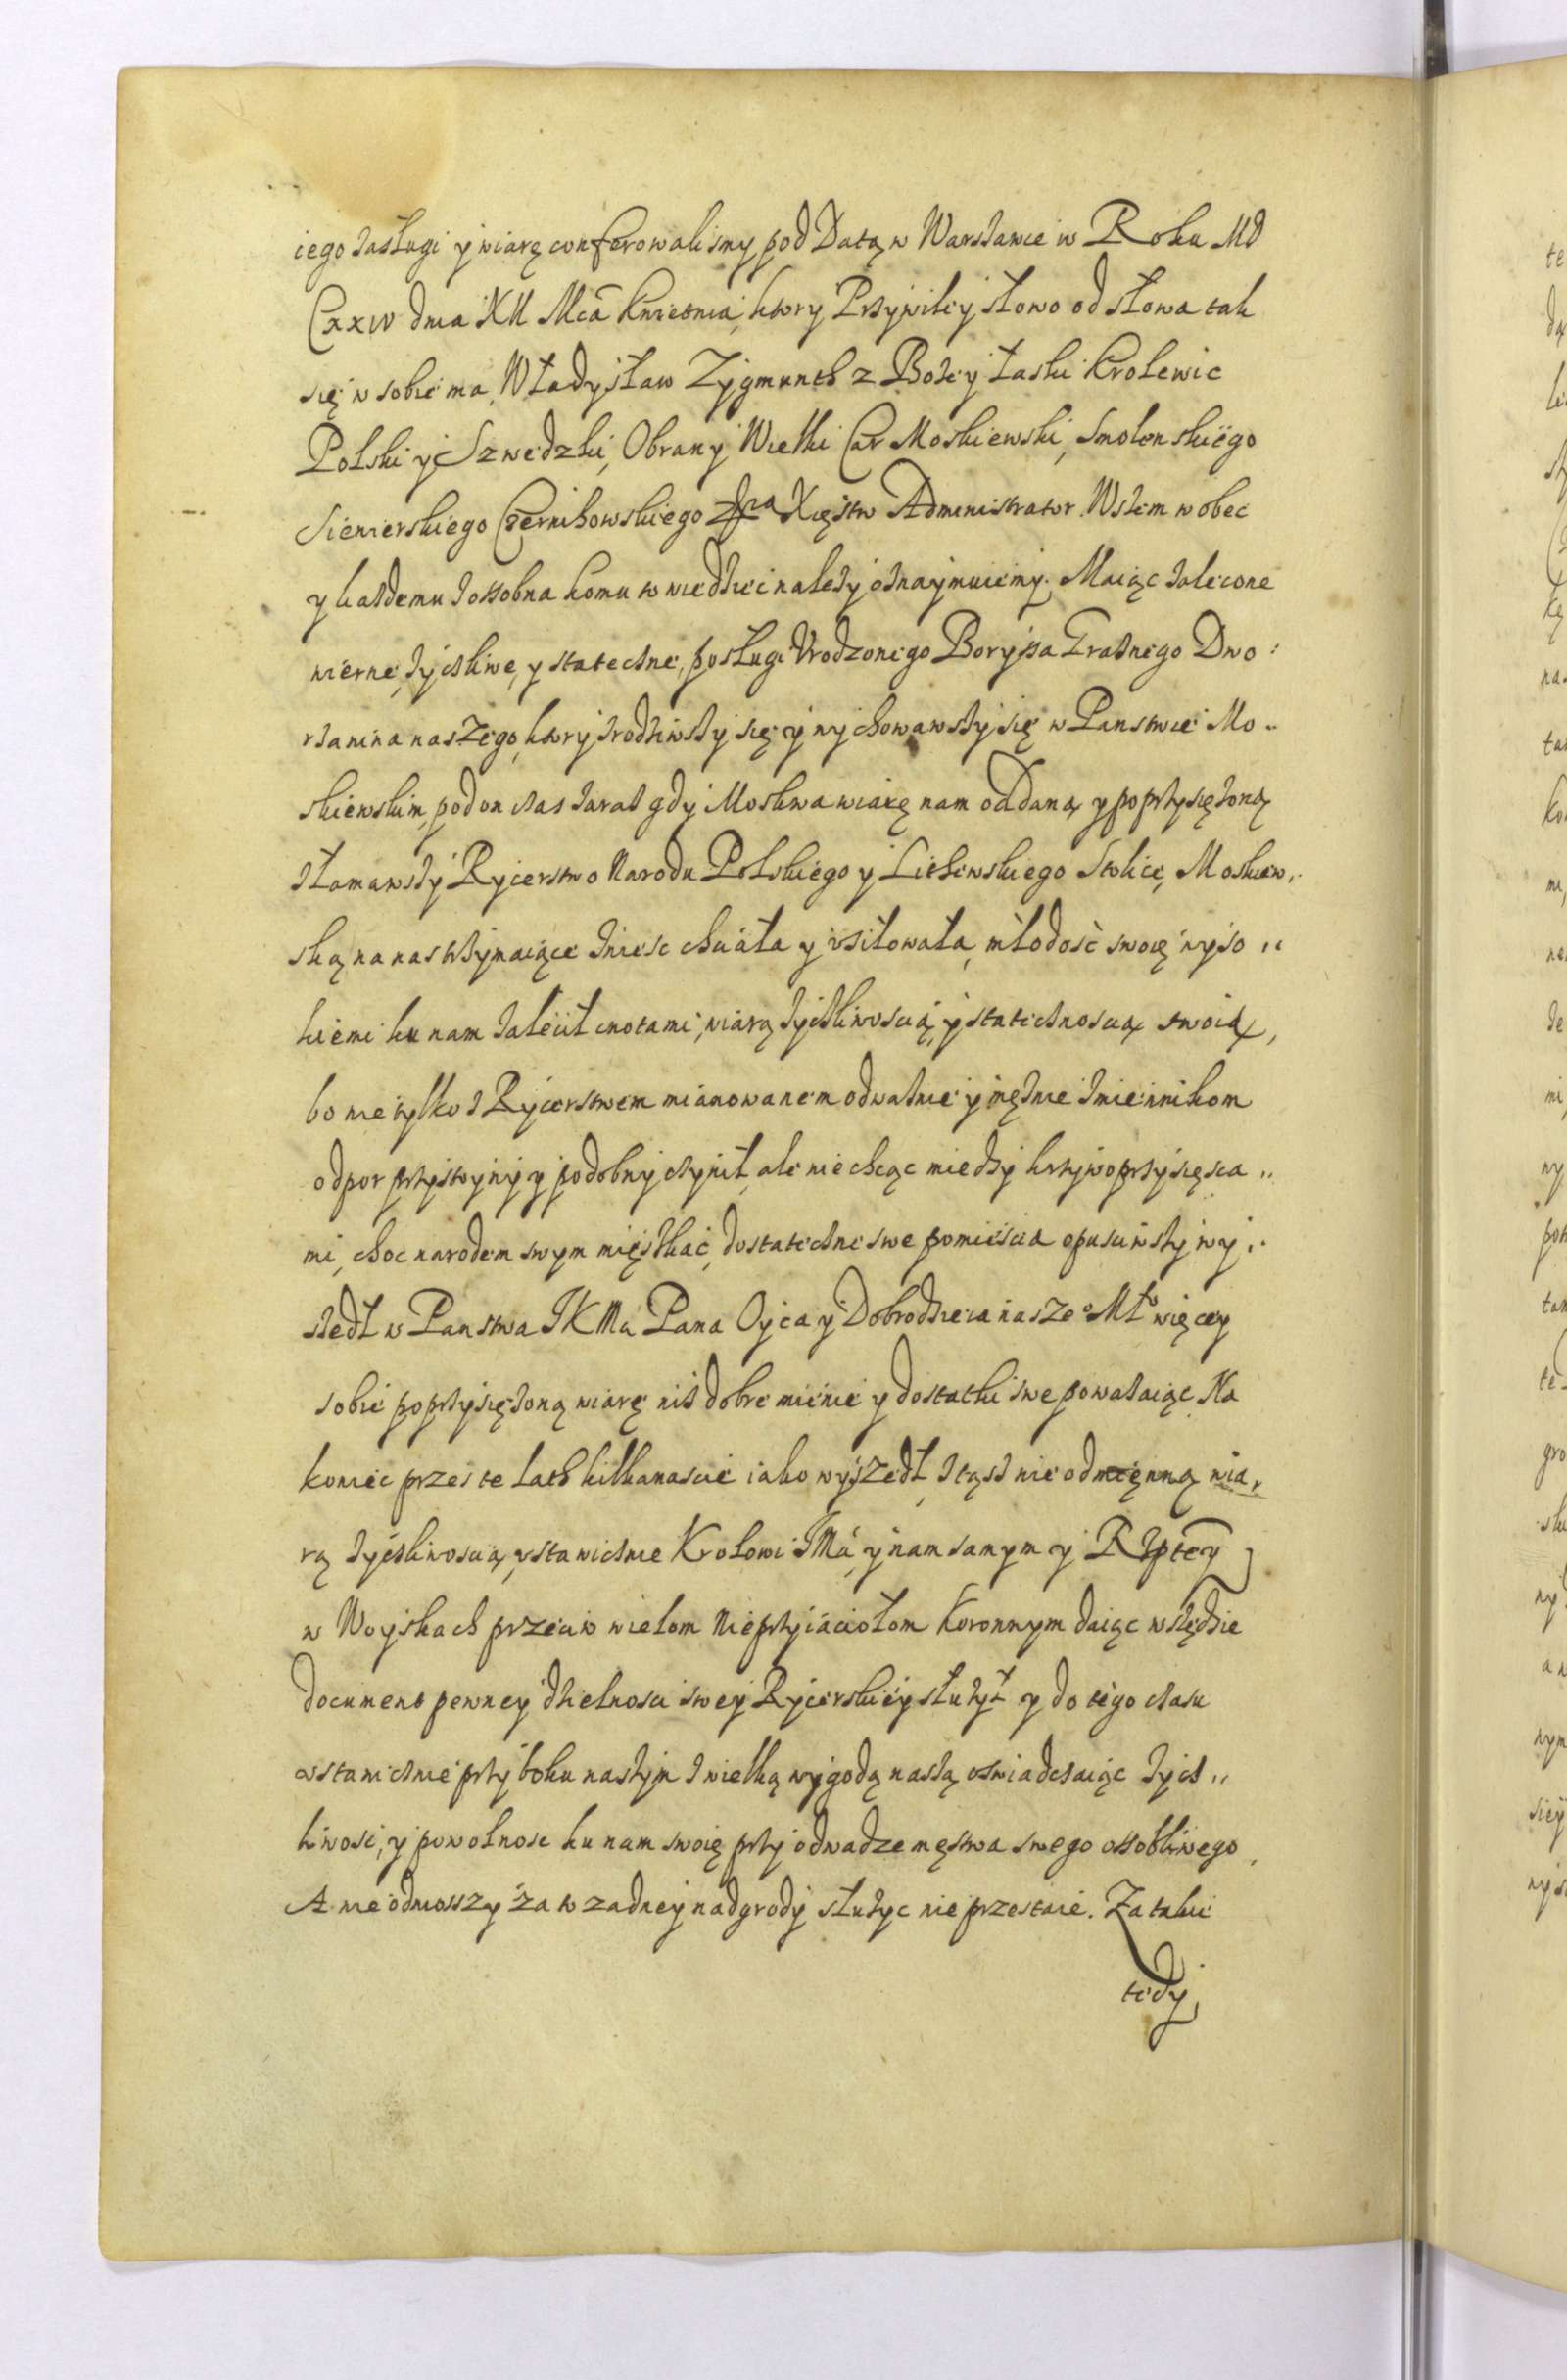 iego zasługi y wiarę conferowalismy pod Datą w Warszawie w Roku MD
CXXIV dnia XII Mca kwietnia, ktory Przywiley słowo od słowa tak
się w sobie ma, Władysław Zygmunth z Bozey łaski Krolewic
Polski y Szwedzki, Obrany Wielki Car Moskiewski, Smolenskiego
Siewierskiego Czernihowskiego Xięstw Administrator. Wszem wobec
y kazdemu zossobna komu to wiedziec nalezy oznaymuiemy. Maiąc zalecone
wierne, zyczliwe, y stateczne, posługi Vrodzonego Boryssa Graznego Dwo:
rzanina naszego, ktory zrodziwszy się y wychowawszy się w Panstwie Mo..
skiewskim, pod on czas zaraz gdy Moskwa wiarę nam oddaną y poprzysięzoną
złamawszy Rycerstwo Narodu Polskiego y Lithewskiego Stolicę, Moskiew,.
ską na nas trzymaiące zniesc chciała y vsiłowała, młodość swoię wyso..
kiemi ku nam zalecił cnotami, wiarą zyczliwoscią, y statecznoscią swoią,
bo nie tylko z Rycerstwem mianowanem odwaznie y męznie zmiennikom
odpor przystoyny y podobny czynił, ale nie chcąc miedzy krzywoprzysięsca..
mi, choc narodem swym mięszkac, dostateczne swe pomieścia opusciwszy wy..
szedł w Panstwa JKMci Pana Oyca y Dobrodzieia naszeo Młº więcey
sobie poprzysięzoną wiarę niz dobre mienie y dostatki swe powazaiąc. Na
koniec przes te lath kilkanascie iako wyszedł, z tąsz nieodmięnną wia,.
rą zyczliwoscią, vstawicznie Krolowi JMci, y nam samym y Rzptey
w Woyskach przeciw wielom Nieprzyiaciołom Koronnym daiąc wszędzie
document pewney dzielnosci swey Rycerskiey słuzył y do tego czasu
vstawicznie przy boku naszym z wielką wygodą naszą oswiadczaiąc zycz..
liwosc, y powolnosc ku nam swoię przy odwadze męstwa swego ossobliwego,
A nie odniosszy za to zadney nadgrody słuzyc nie przestaie. Za takie
tedy